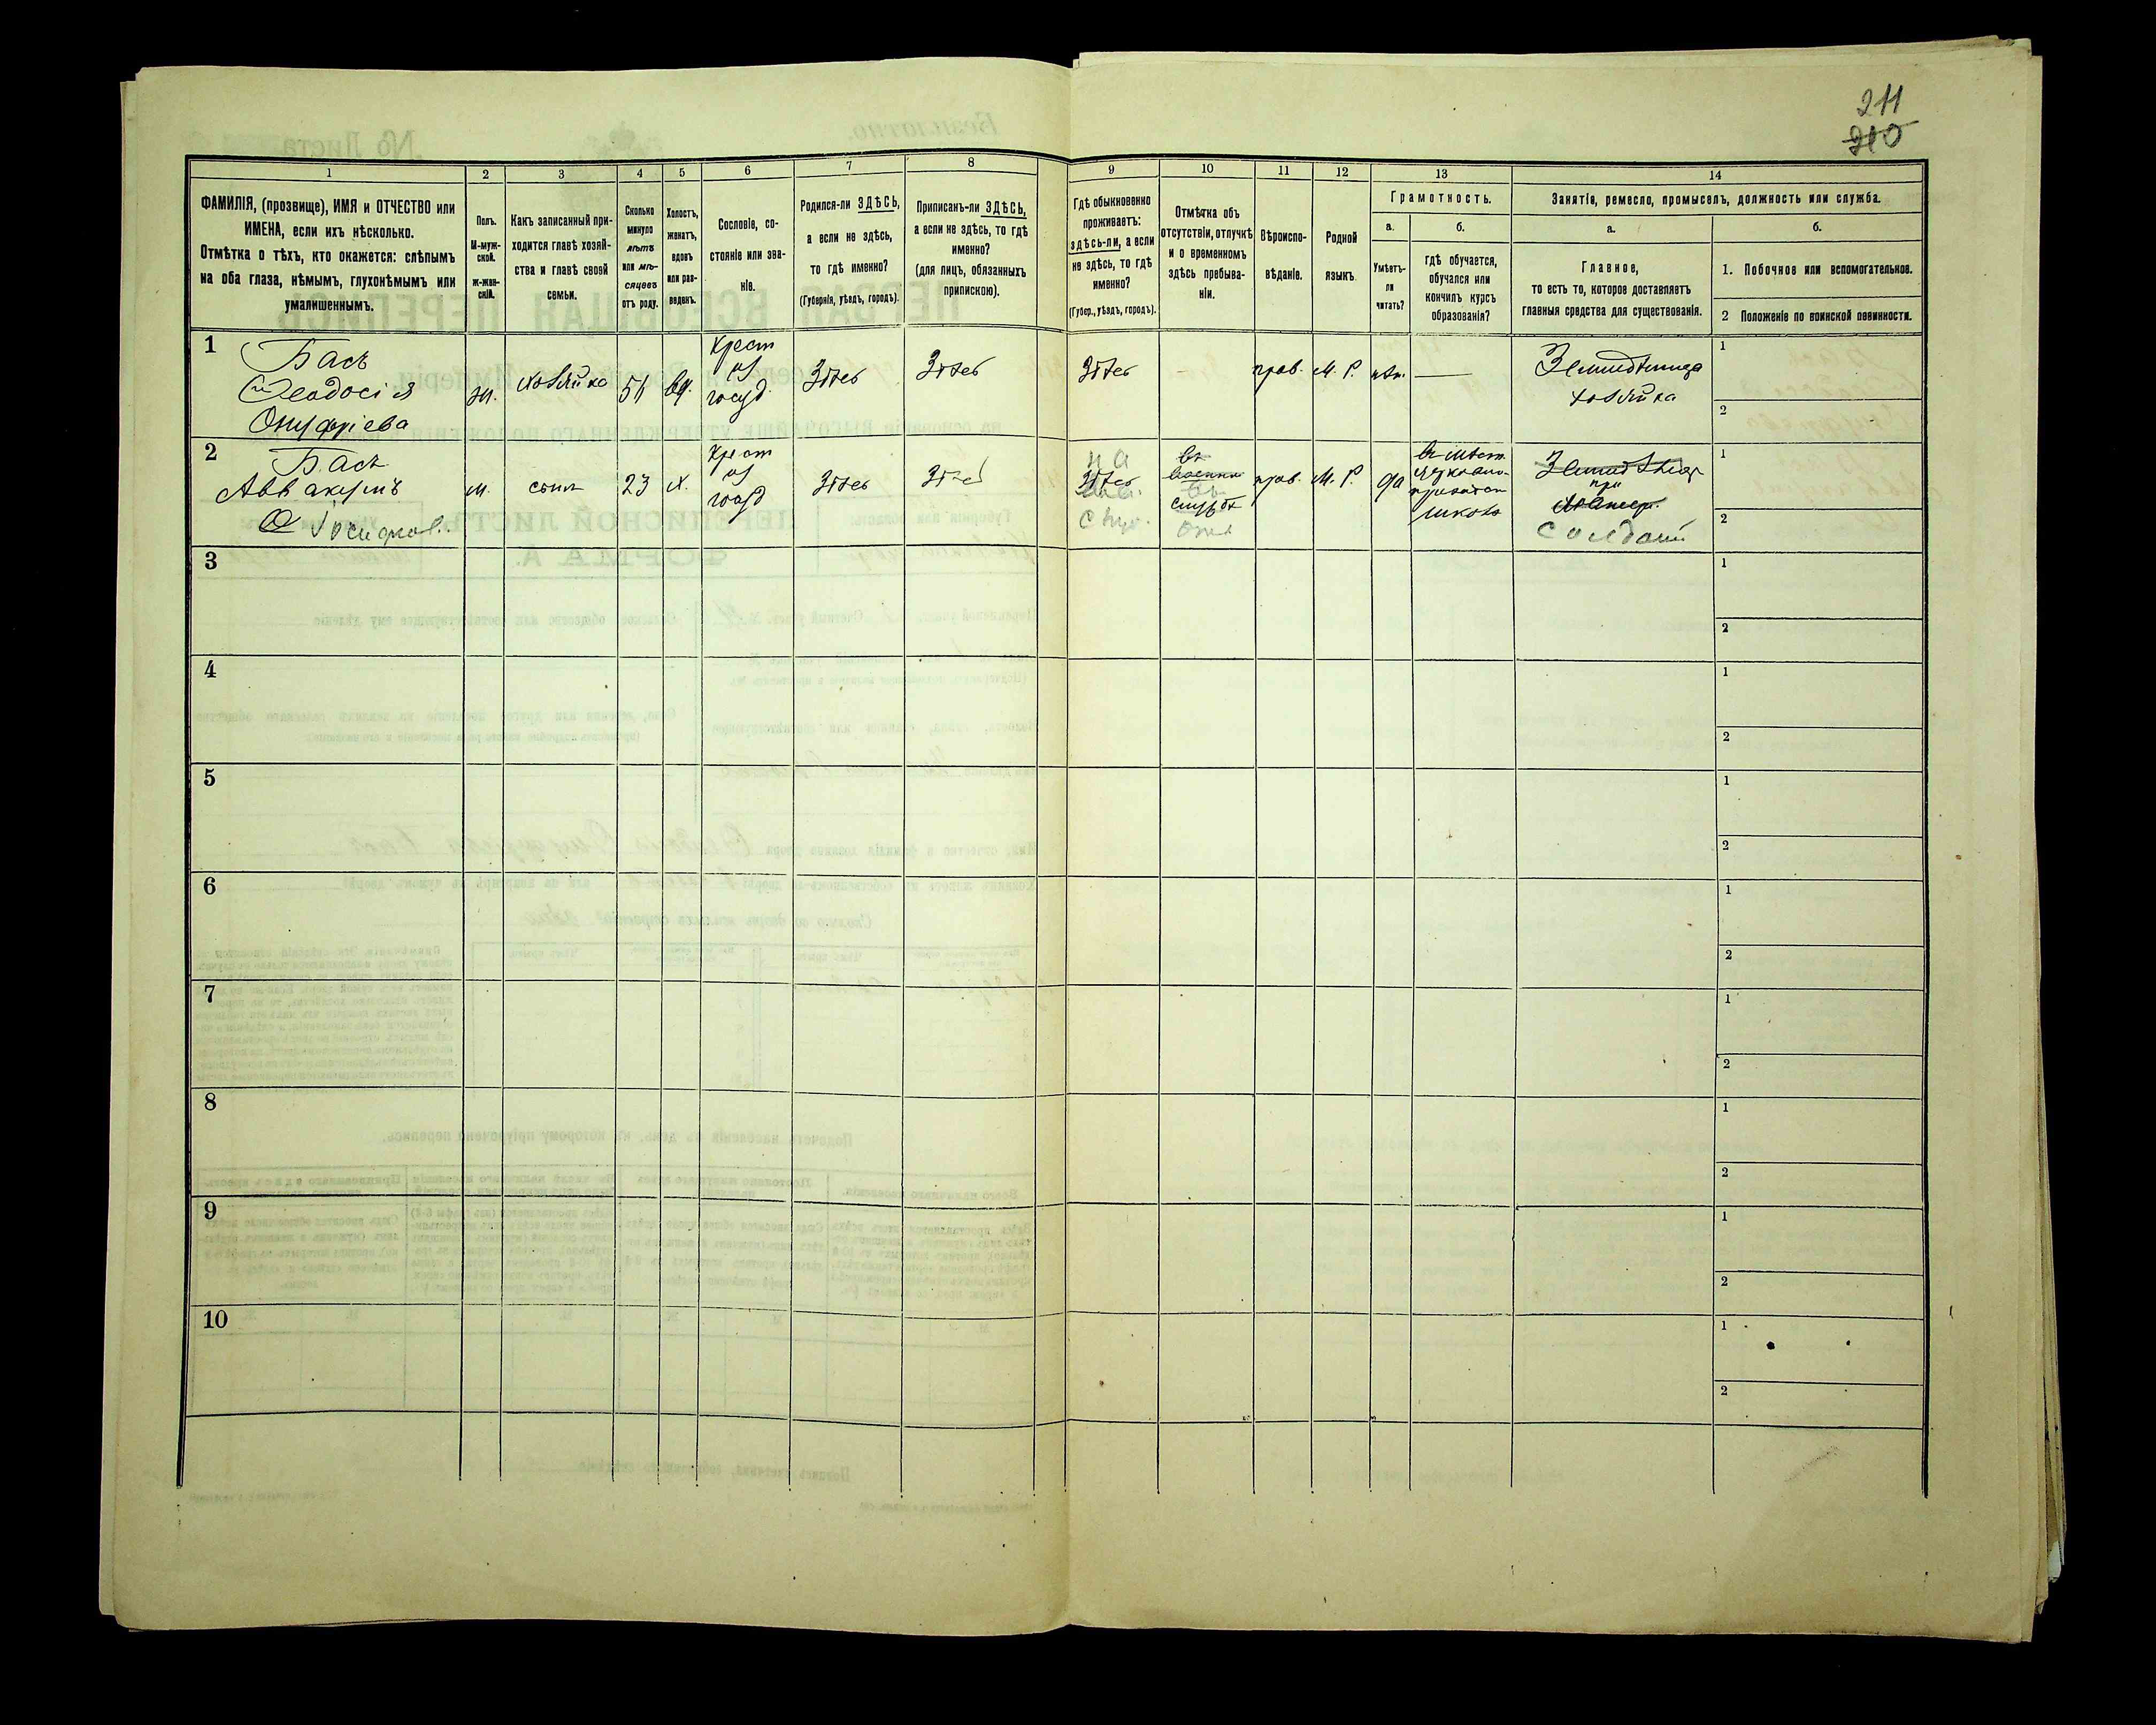 211
210
1
2
3
4
5
6
7
8
9
10
11
12
13
14
ФАМИЛІЯ, (прозвище), ИМЯ и ОТЧЕСТВО или
ИМЕНА, если ихъ нѣсколько.
Отмѣтка о тѣхъ, кто окажется: слѣпымъ
на оба глаза, нѣмымъ, глухонѣмымъ или
умалишеннымъ.
Полъ.
М-муж-
ской.
Ж-жен-
скій.
Какъ записанный при-
ходится главѣ хозяй-
ства и главѣ своей
семьи.
Сколько
минуло
лѣтъ
или мѣ-
сяцевъ
отъ роду.
Холостъ,
женатъ,
вдовъ
или раз-
веденъ.
Сословіе, со-
стояніе или зва-
ніе.
Родился-ли ЗДѢСЬ,
а если не здѣсь,
то гдѣ именно?
(Губернія, уѣздъ, городъ).
Приписанъ-ли ЗДѢСЬ,
а если не здѣсь, то гдѣ
именно?
(для лицъ, обязанныхъ
припискою).
Гдѣ обыкновенно
проживаетъ:
здѣсь-ли, а если
не здѣсь, то гдѣ
именно?
(Губер., уѣздъ, городъ).
Отмѣтка объ
отсутствіи, отлучкѣ
и о временномъ
здѣсь пребыва-
ніи.
Вѣроиспо-
вѣданіе.
Родной
языкъ.
Грамотность.
а.
Умѣетъ-
ли
читать?
б.
гдѣ обучается,
обучался или
кончилъ курсъ
образованія?
Занятіе, ремесло, промыселъ, должность или служба.
а.
Главное,
то есть то, которое доставляетъ
главныя средства для существованія.
б.
1. Побочное или вспомогательное.
2 Положеніе по воинской повинности.
1
Басъ
Ѳеодосія
Онуфріева
жн.
хозяйка
51
вд.
крест
из
госуд.
Здѣсь
Здѣсь
Здѣсь
прав.
М. Р.
нѣт.
—
Земледѣлица
хозяйка
1
2
2
Басъ
Аввакумъ
Іосифов.
м.
сынъ
23
х.
крест
из
госуд
Здѣсь
Здѣсь
на
Здѣсь
въ
военной
службѣ
прав.
М. Р.
да
въ мѣст.
церковно-
приходск
школѣ
Земледѣлец
при
хозяер.
солдатъ
1
2
3
1
2
4
1
2
5
1
2
6
1
2
7
1
2
8
1
2
9
1
2
10
1
2